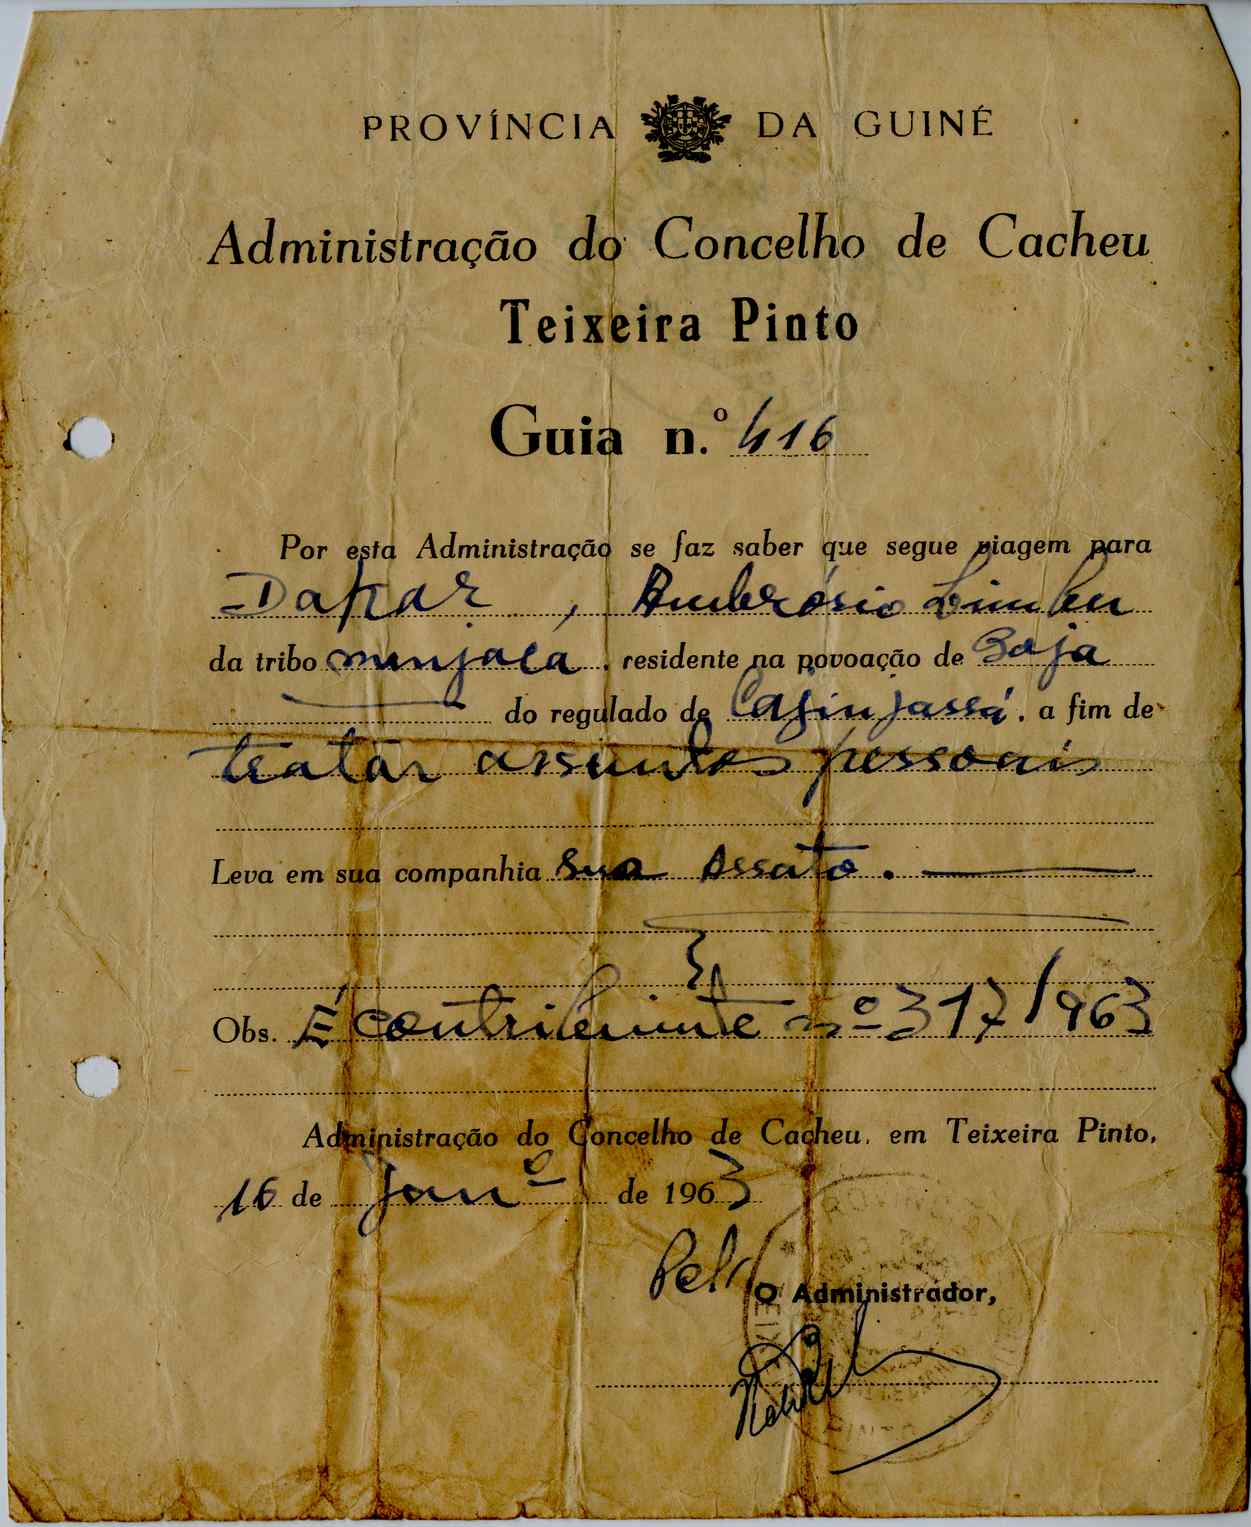 PROVÍNCIA DA GUINÉ
Administração do Concelho de Cacheu
Teixeira Pinto
Guia n.º 416
Por esta Administração se faz saber que segue viagem para
Dakar, Ambrósio
da tribo manjaca, residente na povoação de Baja
do regulado de , a fim de
tratar assuntos pessoais
Leva em sua companhia Sua Assato.
Obs. É contribuinte nº 317/963
Administração do Concelho de Cacheu, em Teixeira Pinto,
16 de Janº de 1963
Pel' O Administrador,